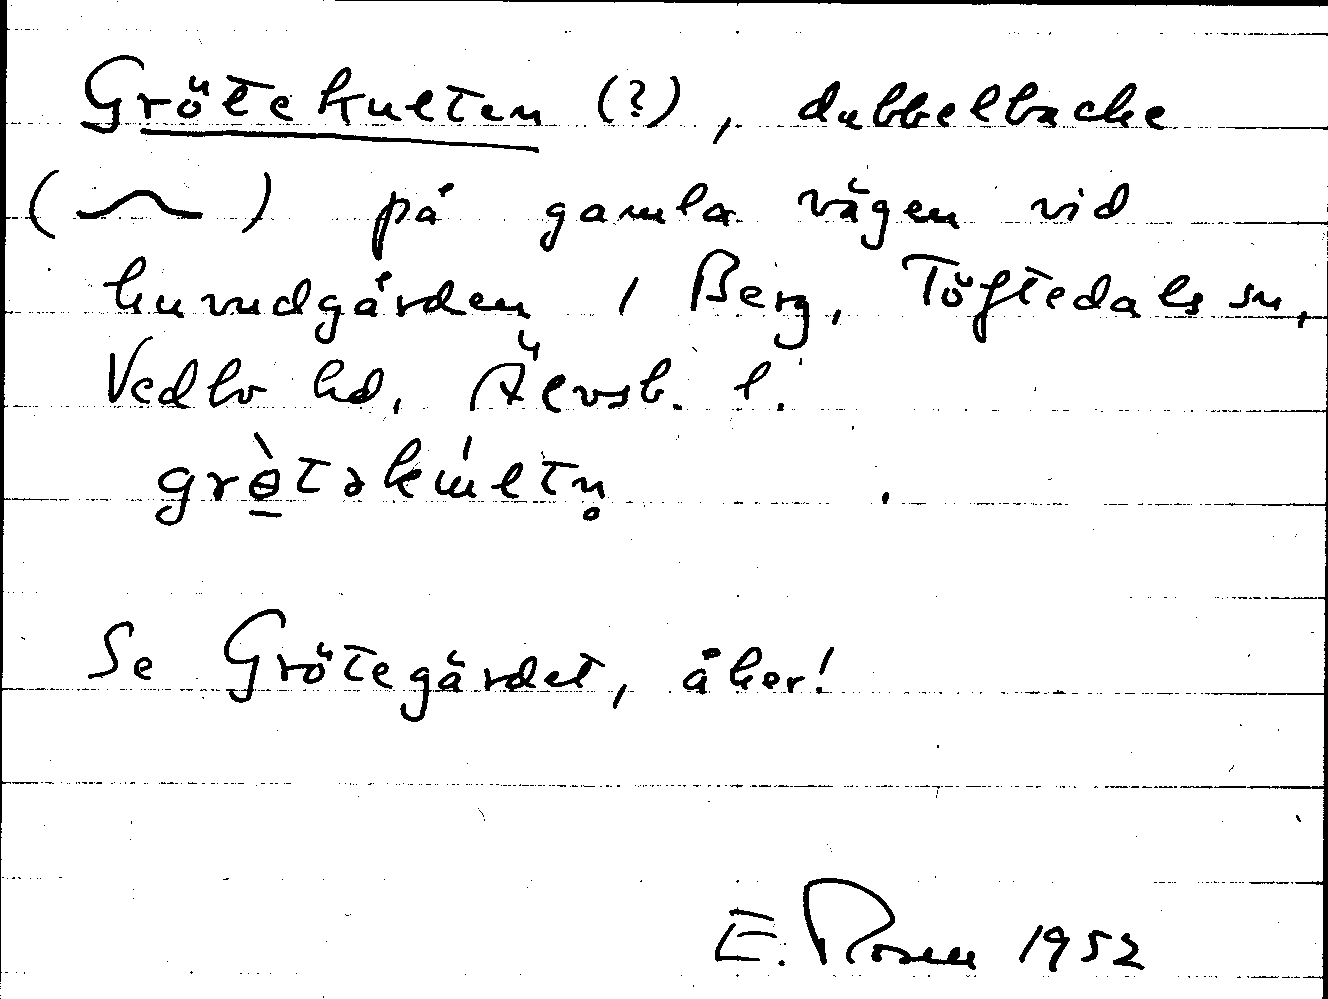 Grötekulten (?), dubbelbacke
( ) på gamla vägen vid
huvudgården i Berg, Töftedals sn,
Vedbo hd, Älvsb. l.
grɵ̀təkúltn̥
Se Grötegärdet, åker!
E. Rosen 1952